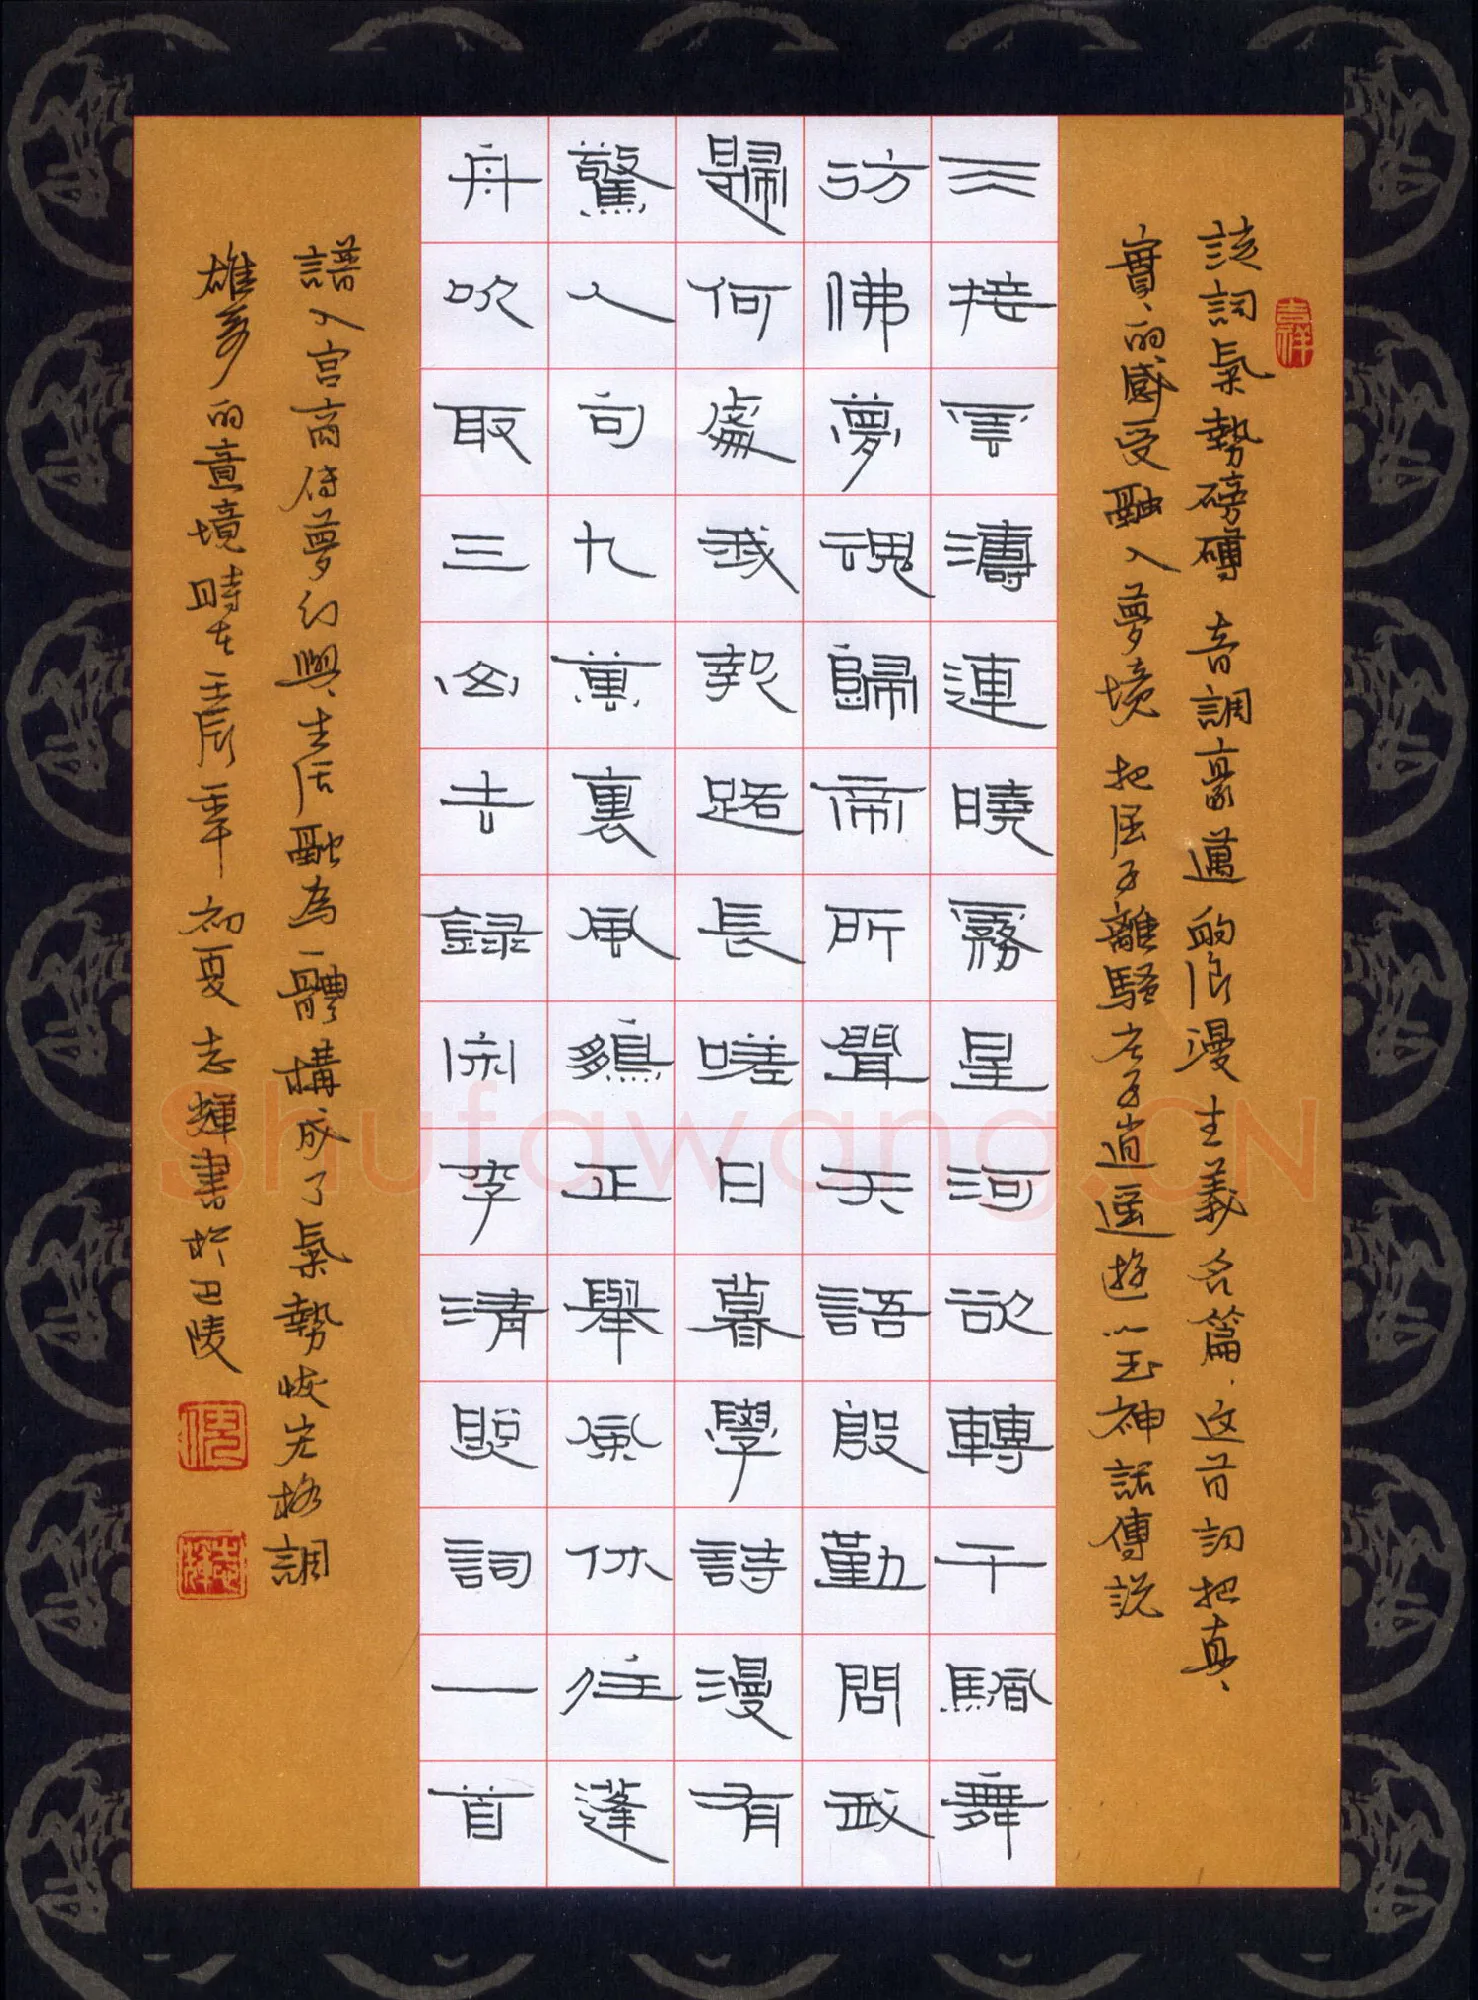 吉祥
該詞氣勢磅礴音調豪邁的浪漫主義名篇.这首詞把真、
實、的感受融入夢境把屈子離騷庄子逍遥遊以至神話傳説
天接雲濤連曉霧星河欲轉千颿舞
彷佛夢魂歸帝所聞天語殷勤問我
歸何處我報路長嗟日暮學詩漫有
驚人句九萬裏風鵬正舉風休往蓬
舟吹取三山去錄宋李清照詞一首
譜入宮商使夢幻與生活融為一體構成了氣勢恢宏格調
雄奇的意境時在壬辰年初夏志輝書於巴陵
志輝
Shufawang.CN